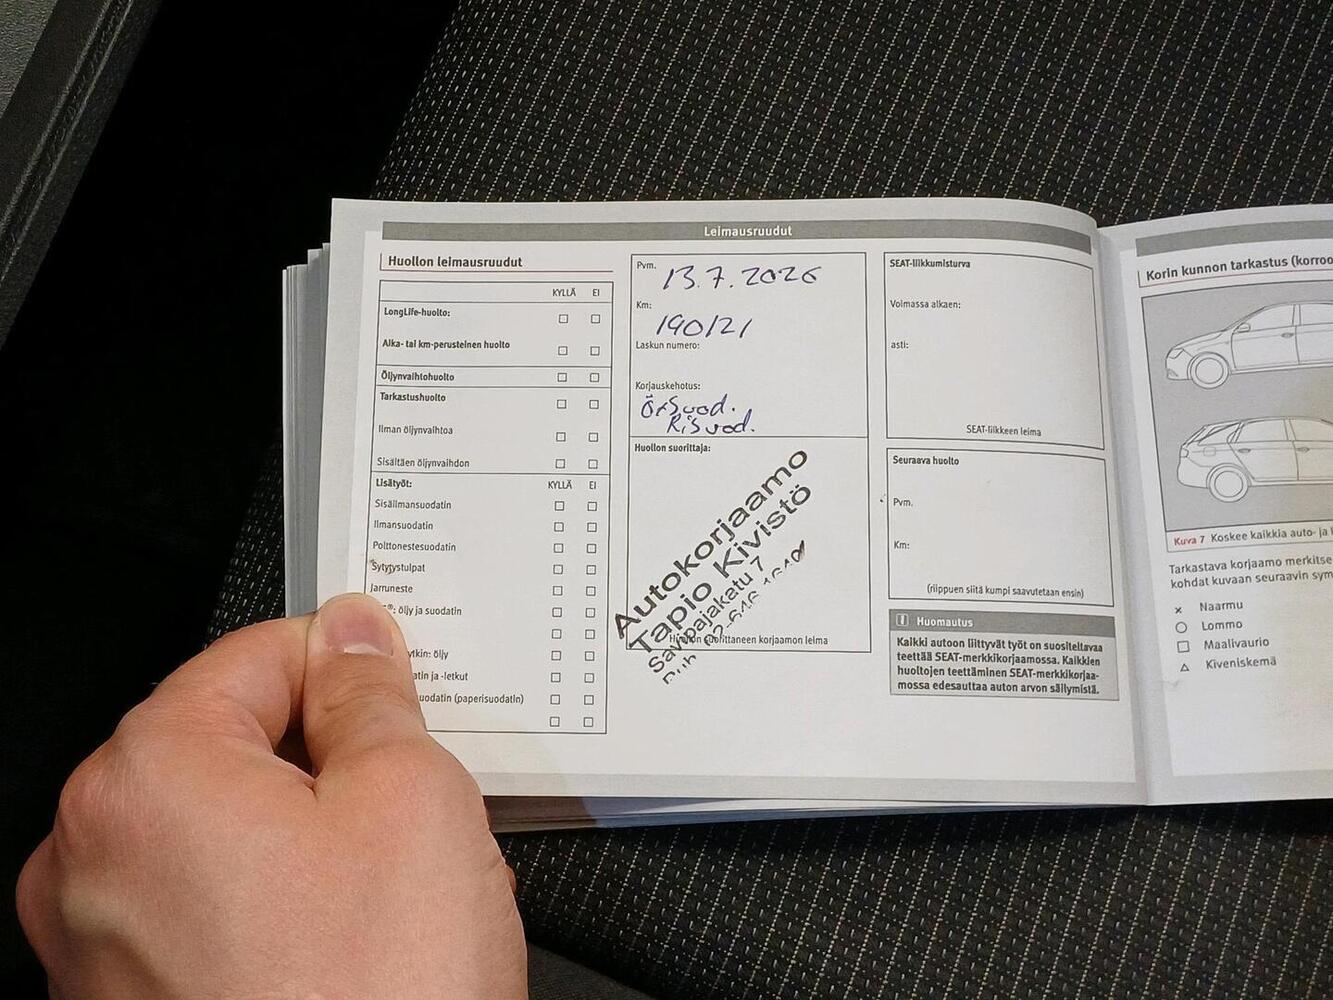 Leimausruudut
Huollon leimausruudut
KYLLÄ EI
LongLife-huolto:
Aika- tai km-perusteinen huolto
Öljynvaihtohuolto
Tarkastushuolto
Ilman öljynvaihtoa
Sisältäen öljynvaihdon
Lisätyöt: KYLLÄ EI
Sisäilmansuodatin
Ilmansuodatin
Polttonestesuodatin
Sytytystulpat
Jarruneste
öljy ja suodatin
öljy
ja -letkut
(paperisuodatin)
Pvm.
13.7.2026
Km:
190121
Laskun numero:
Korjauskehotus:
Ör Suod.
Ri Suod.
Huollon suorittaja:
Autokorjaamo
Tapio Kivistö
Savipajakatu 7
Huollon suorittaneen korjaamon leima
SEAT-liikkumisturva
Voimassa alkaen:
asti:
SEAT-liikkeen leima
Seuraava huolto
Pvm.
Km:
(riippuen siitä kumpi saavutetaan ensin)
i Huomautus
Kaikki autoon liittyvät työt on suositeltavaa
teettää SEAT-merkkikorjaamossa. Kaikkien
huoltojen teettäminen SEAT-merkkikorjaa-
mossa edesauttaa auton arvon säilymistä.
Korin kunnon tarkastus (korroo
Kuva 7 Koskee kaikkia auto- ja
Tarkastava korjaamo merkitse
kohdat kuvaan seuraavin sym
Naarmu
Lommo
Maalivaurio
Kiveniskemä